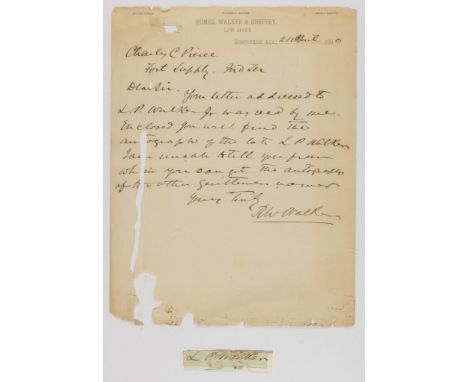 HUMES, WALKER & SHEFFEY,
LAW OFFICE
HUNTSVILLE, ALA., 21 April 189
Charles C Pierce
Fort Supply. Ind Ter
Dear Sir. Your letter addressed to
L. P. Walker Jr was recd by me.
Enclosed you will find the
autograph of the late L P Walker
I am unable to tell you from
whom you can get the autographs
of the other gentlemen named
Yours truly
R W Walker
L P Walker